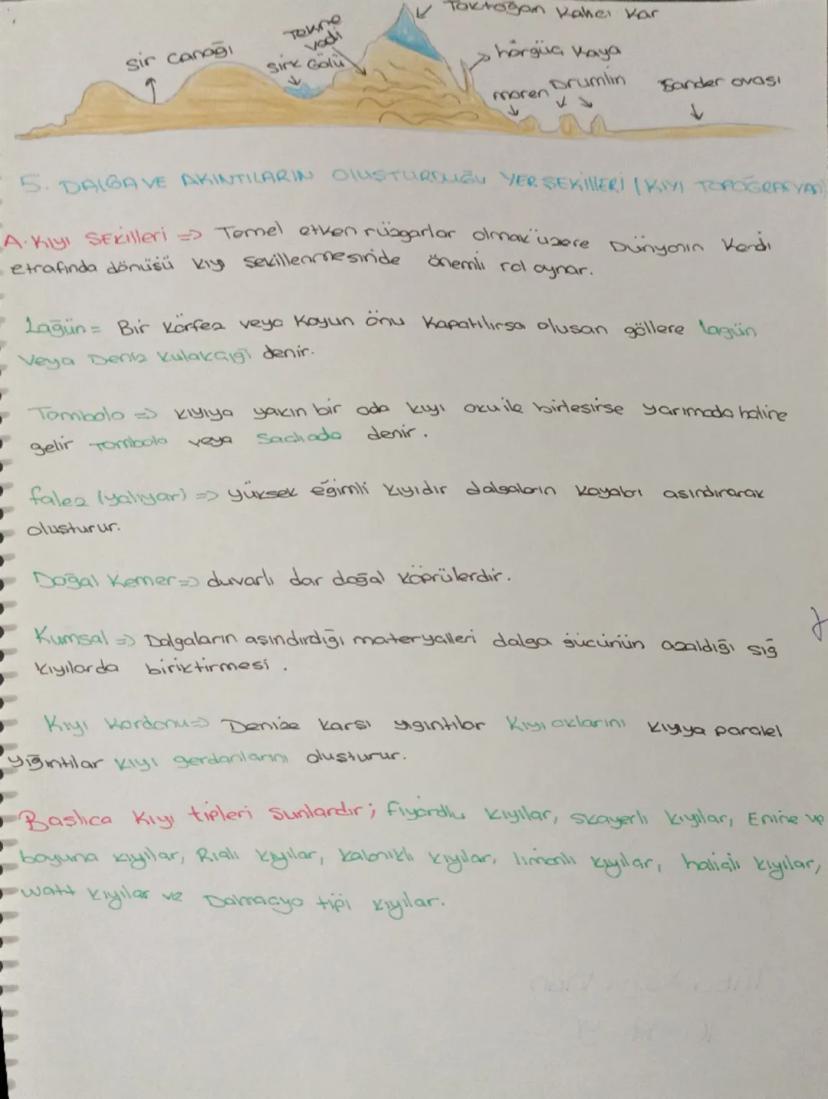 Toktoğan Kalıcı Kar
Tekne
vadi
sir canağı
sirk Gölü
hörgüç Kaya
moren Drumlin
Sander ovası
5. DALGA VE AKINTILARIN OLUSTURDUĞU YERSEKİLLERİ (KIYI TOPOĞRAFYASI)
A. Kıyı SEKilleri => Temel etken rüzgarlar olmak üzere Dünyanın Kendi
etrafında dönüsü kıyı sekillenmesinide önemli rol oynar.
Lağün = Bir Körfez veya Koyun önü Kapatılırsa olusan göllere lagün
veya Deniz Kulakçığı denir.
Tombolo => kıyıya yakın bir ada kıyı oku ile birlesirse yarımada haline
gelir Tombolo veya Saclıada denir.
falez (yalıyar) => yüksek eğimli kıyıdır dalgaların kayaları asındırarak
olusturur.
Doğal Kemer => duvarlı dar doğal köprülerdir.
Kumsal => Dalgaların asındırdığı materyalleri dalga gücünün azaldığı sığ
kıyılarda biriktirmesi.
Kıyı Kordonu => Denize karsı yıgıntılar Kıyı oklarını kıyıya paralel
yığıntılar kıyı gerdanlarını olusturur.
Baslıca Kıyı tipleri sunlardır; fiyordlu kıyılar, skayerli kıyılar, Enine ve
boyuna kıyılar, Rialı kıyılar, kalanklı kıyılar, limanlı kıyılar, haliçli kıyılar,
watt kıyılar ve Dalmaçya tipi kıyılar.